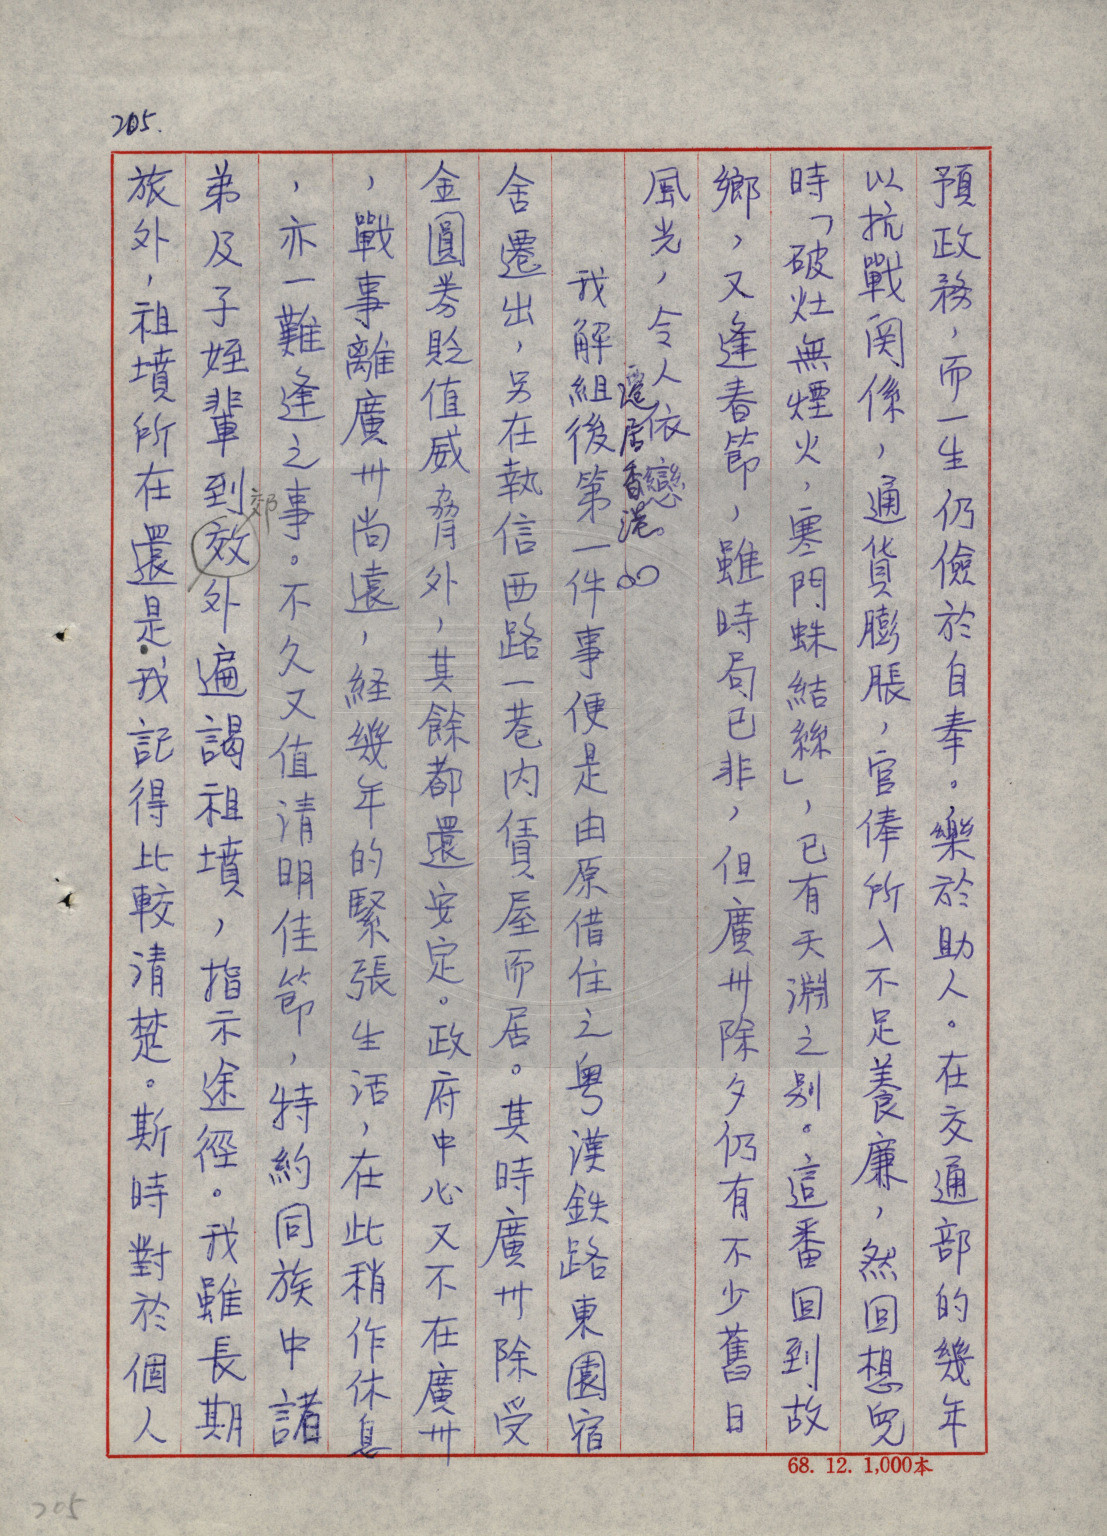 205.
預政務，而一生仍儉於自奉。樂於助人。在交通部的幾年
以抗戰関係，通貨膨脹，官俸所入不足養廉，然回想兒
時「破灶無煙火，寒門蛛結絲」，已有天淵之别。這番回到故
鄉，又逢春節，雖時局已非，但廣州除夕仍有不少舊日
風光，令人依戀。
遷居香港
我解組後第一件事便是由原借住之粤漢鉄路東園宿
舍遷出，另在執信西路一巷内賃屋而居。其時廣州除受
金圓券貶值威脅外，其餘都還安定。政府中心又不在廣州
，戰事離廣州尚遠，経幾年的緊張生活，在此稍作休息
，亦一難逢之事。不久又值清明佳節，特約同族中諸
郊
弟及子姪輩到效外遍謁祖墳，指示途徑。我雖長期
旅外，祖墳所在還是我記得比較清楚。斯時對於個人
68. 12. 1,000本
205